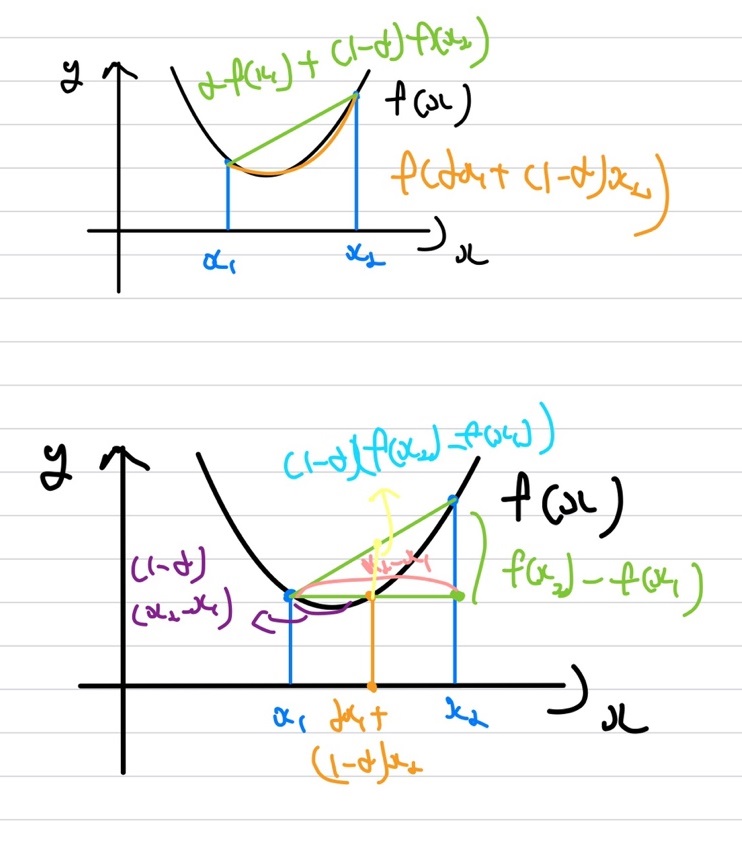 αf(x₁) + (1-α)f(x₂)
y
f(x)
f(αx₁ + (1-α)x₂)
x₁
x₂
x
(1-α)(f(x₂)-f(x₁))
y
f(x)
x₂-x₁
(1-α)
(x₂-x₁)
f(x₂)-f(x₁)
x₁
αx₁ +
(1-α)x₂
x₂
x